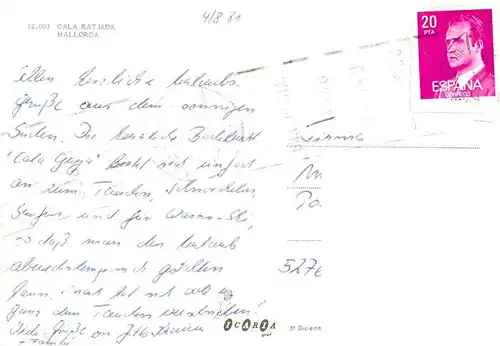 12.003 CALA RATJADA
MALLORCA
4/8 81
20
PTA
ESPAÑA
CORREOS
Allen herzliche Urlaubs
Grüße aus dem sonnigen
Süden. Die herrliche Badebucht
"Cala Guya" bietet sich
an zum Tauchen, Schnorcheln,
Surfen und für Wasser-Ski,
so daß man den Urlaub
abwechslungsreich gestalten
kann.
ganz dem Tauchen verschrieben!
Viele Grüße von
+ Familie
Firma
527
ICARIA
31 Diciemb.